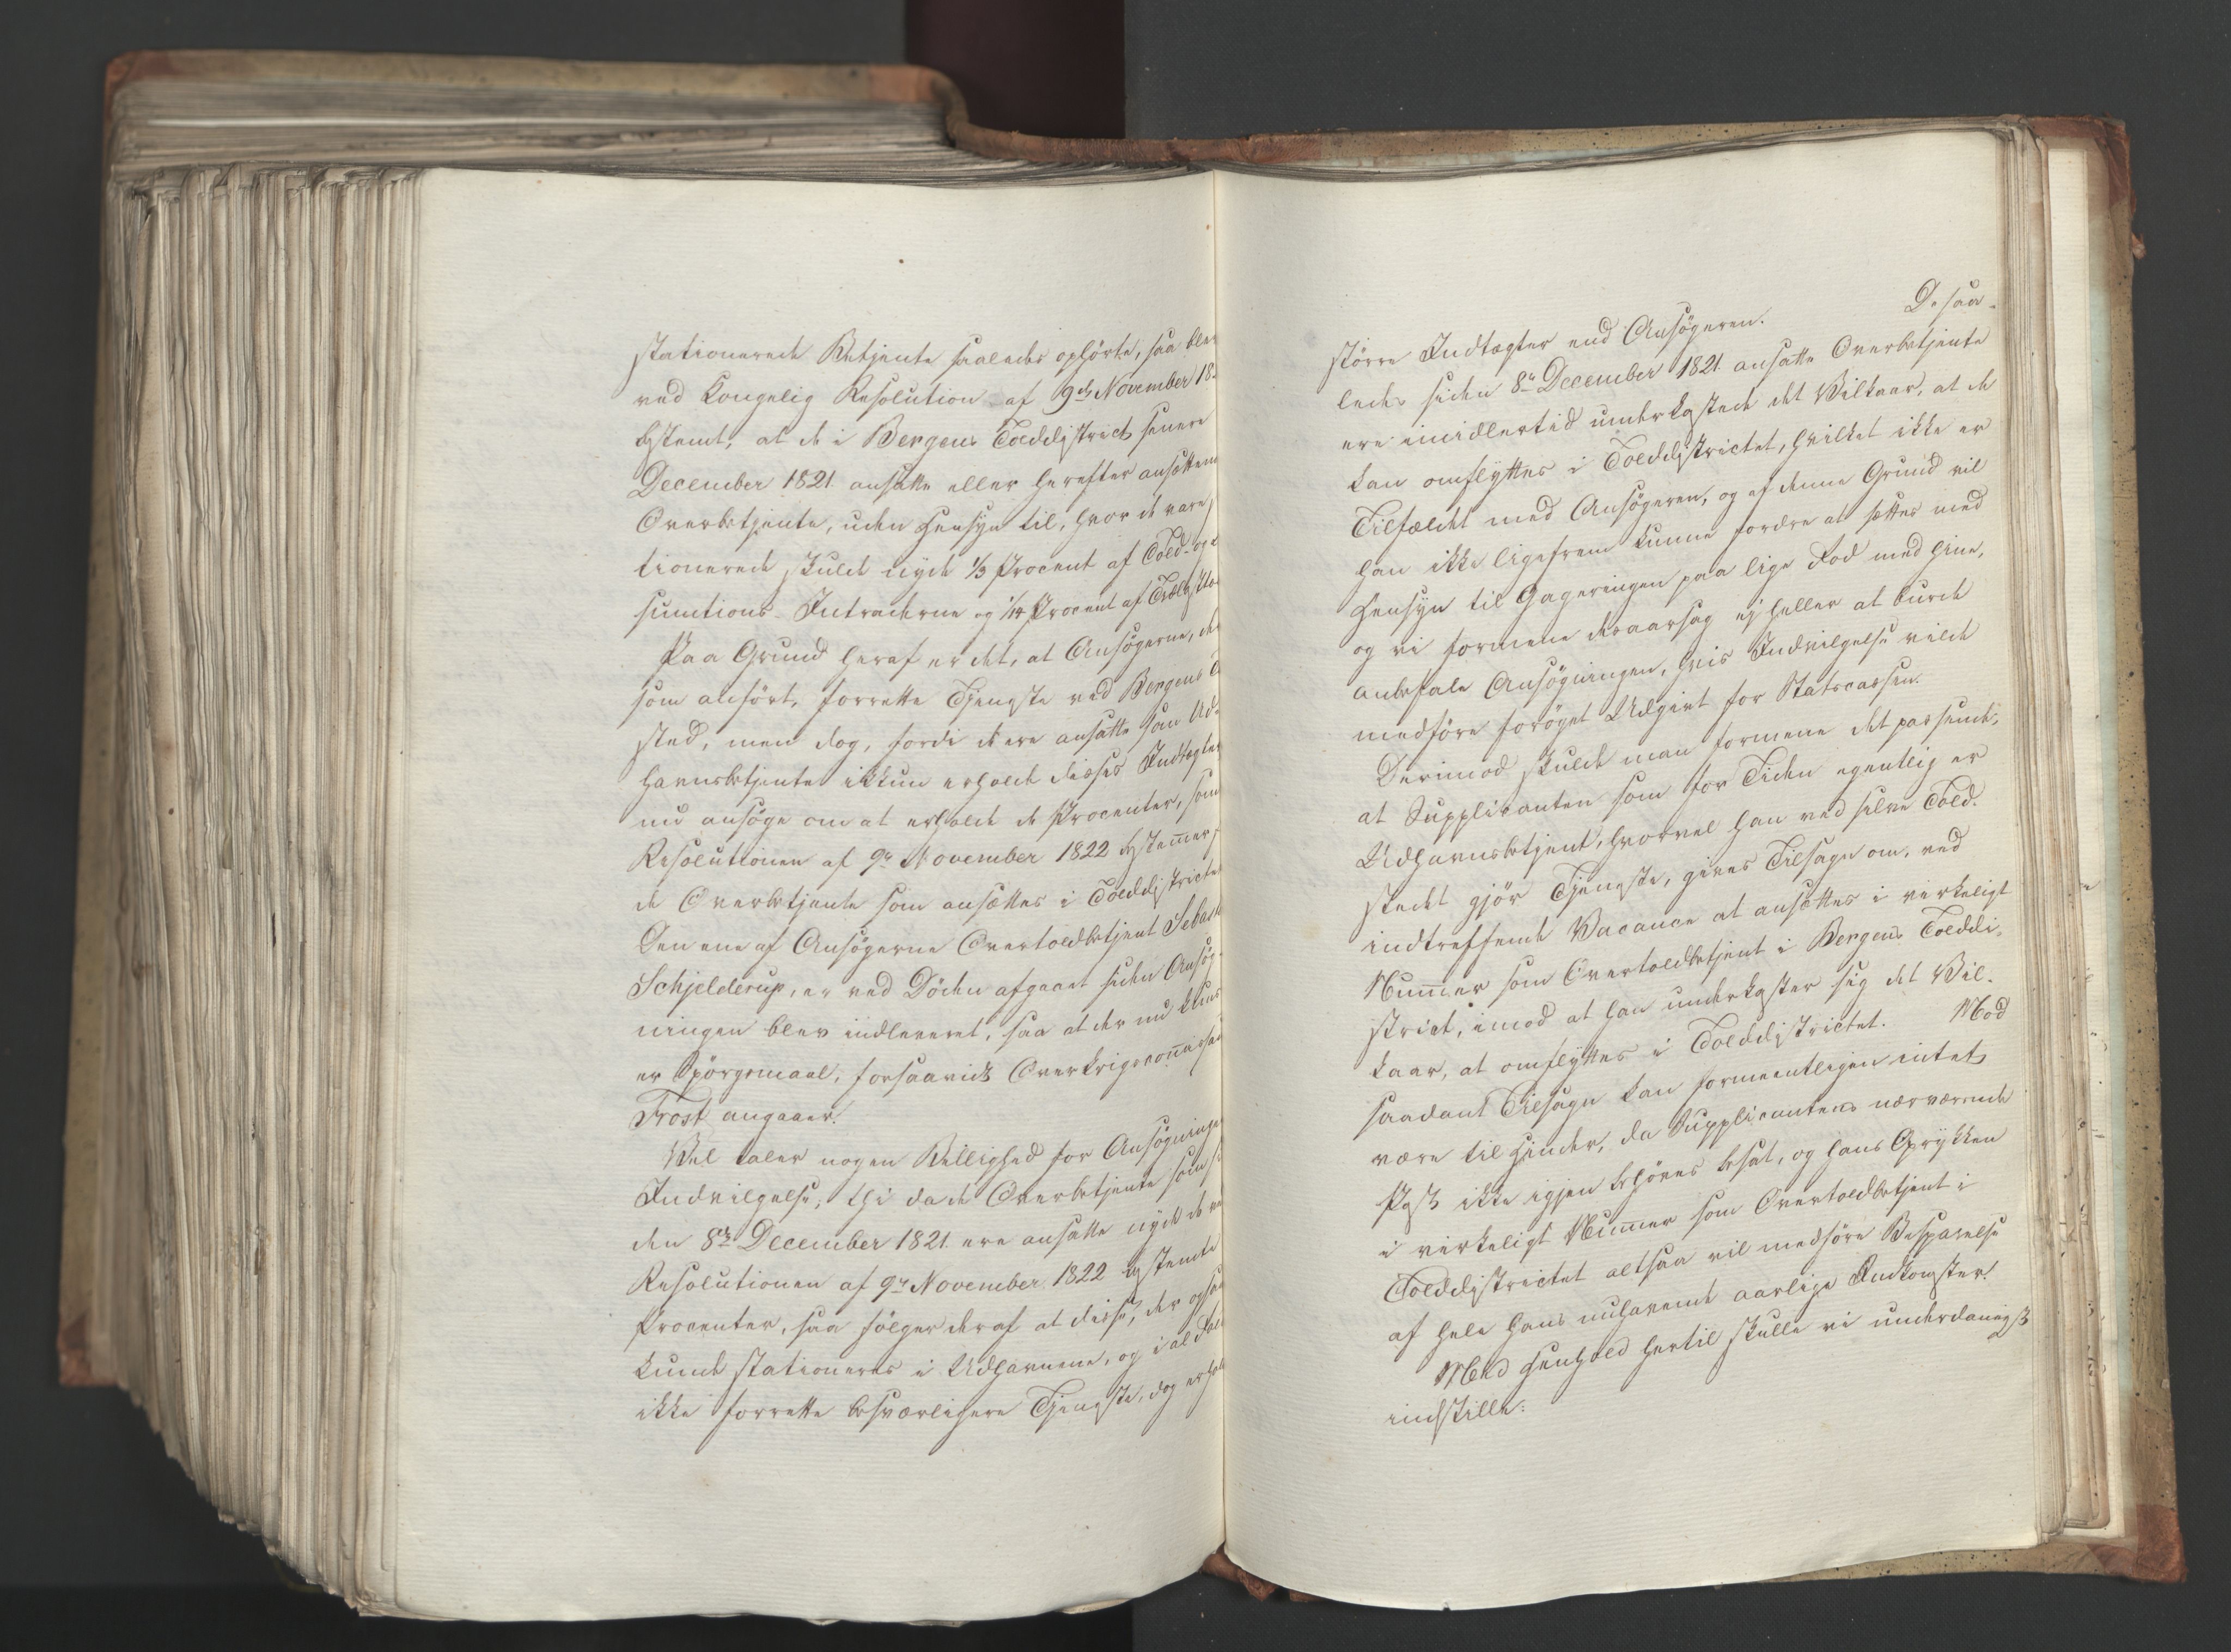 stationerede Betjente saaledes ophörte, saa blev
ved Kongelig Resolution af 9de November 18
bestemt, at de i Bergens Tolddistrict senere
December 1821 ansatte eller herefter ansættende
Overbetjente, uden Hensyn til, hvor de vare
tionerede skulde nyde 1/3 Procent af Told- og
sumtions-Intraderne og 1/14 Procent af
Paa Grund heraf er det, at Ansögerne, der
som anfört, forrette Tjeneste ved Bergens
sted, men dog, fordi de ere ansatte som Ud-
havnsbetjente ikkun erholde disses Indtægter
nu ansöge om at erholde de Procenter, som
Resolutionen af 9de November 1822 bestemmer
de Overbetjente som ansættes i Tolddistrictet
Den ene af Ansögerne Overtoldbetjent Sebast
Schjelderup, er ved Döden afgaaet siden Ansög-
ningen blev indleveret, saa at der nu kuns
er Spörgsmaal, forsaavidt Overkrigscommissair
Frost angaaer.
Vel taler nogen Billighed for Ansögningens
Indvilgelse, thi da de Overbetjente som
den 8de December 1821 ere ansatte nyde de ved
Resolutionen af 9de November 1822 bestemte
Procenter, saa fölger deraf at disse, der ogsaa
kunde stationeres i Udhavnene, og i al Fald
ikke forrette besværligere Tjeneste, dog erholde
större Indtægter end Ansögeren. De saa-
ledes siden 8de December 1821 ansatte Overbetjente
ere imidlertid underkastede det Vilkaar, at de
kan omflyttes i Tolddistrictet, hvilket ikke er
Tilfældet med Ansögeren, og af denne Grund vil
han ikke ligefrem kunne fordre at sættes med
Hensyn til Gageringen paa lige Fod med hine,
og vi formene deraarsag ej heller at burde
anbefale Ansögningen, hvis Indvilgelse vilde
medföre foröget Udgivt for Statscassen.
Derimod skulde man formene det passende,
at Supplicanten som for Tiden egentlig er
Udhavnsbetjent, hvorvel han ved selve Told-
stedet gjör Tjeneste, gives Tilsagn om, ved
indtreffende Vacance at ansættes i virkeligt
Nummer som Overtoldbetjent i Bergens Tolddi-
strict, imod at han underkaster sig det Vil-
kaar, at omflyttes i Tolddistrictet. Mod
saadant Tilsagn kan formeentligen intet
være til Hinder, da Supplicantens nærværende
Post ikke igjen behöves besat, og hans Oprykken
i virkeligt Nummer som Overtoldbetjent i
Tolddistrictet altsaa vil medföre Besparelse
af hele hans nuhavende aarlige Indkomster.
Med Henhold hertil skulle vi underdanigst
indstille: